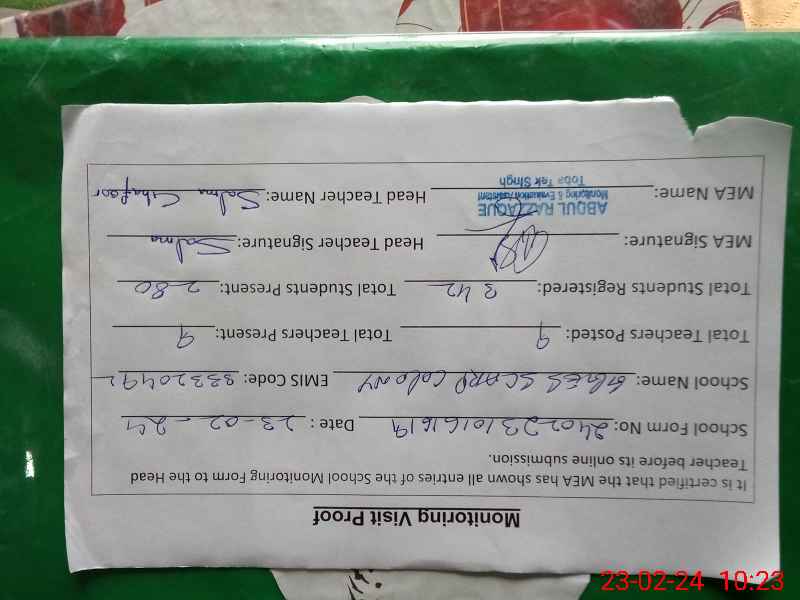 Monitoring Visit Proof
It is certified that the MEA has shown all entries of the School Monitoring Form to the Head
Teacher before its online submission.
School Form No: 24022310161619 Date: 23-02-24
School Name: SCARP COLONY EMIS Code: 33320492
Total Teachers Posted: 9 Total Teachers Present: 9
Total Students Registered: 342 Total Students Present: 280
MEA Signature: Head Teacher Signature: Salma
MEA Name: ABDUL RAZZAQUE Head Teacher Name: Salma Ghafoor
Monitoring & Evaluation Assistant
Toba Tek Singh
23-02-24 10:23